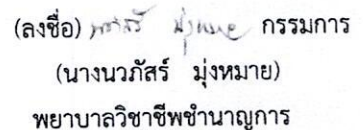 (ลงชื่อ) กรรมการ
(นางนวภัสร์ มุ่งหมาย)
พยาบาลวิชาชีพชำนาญการ